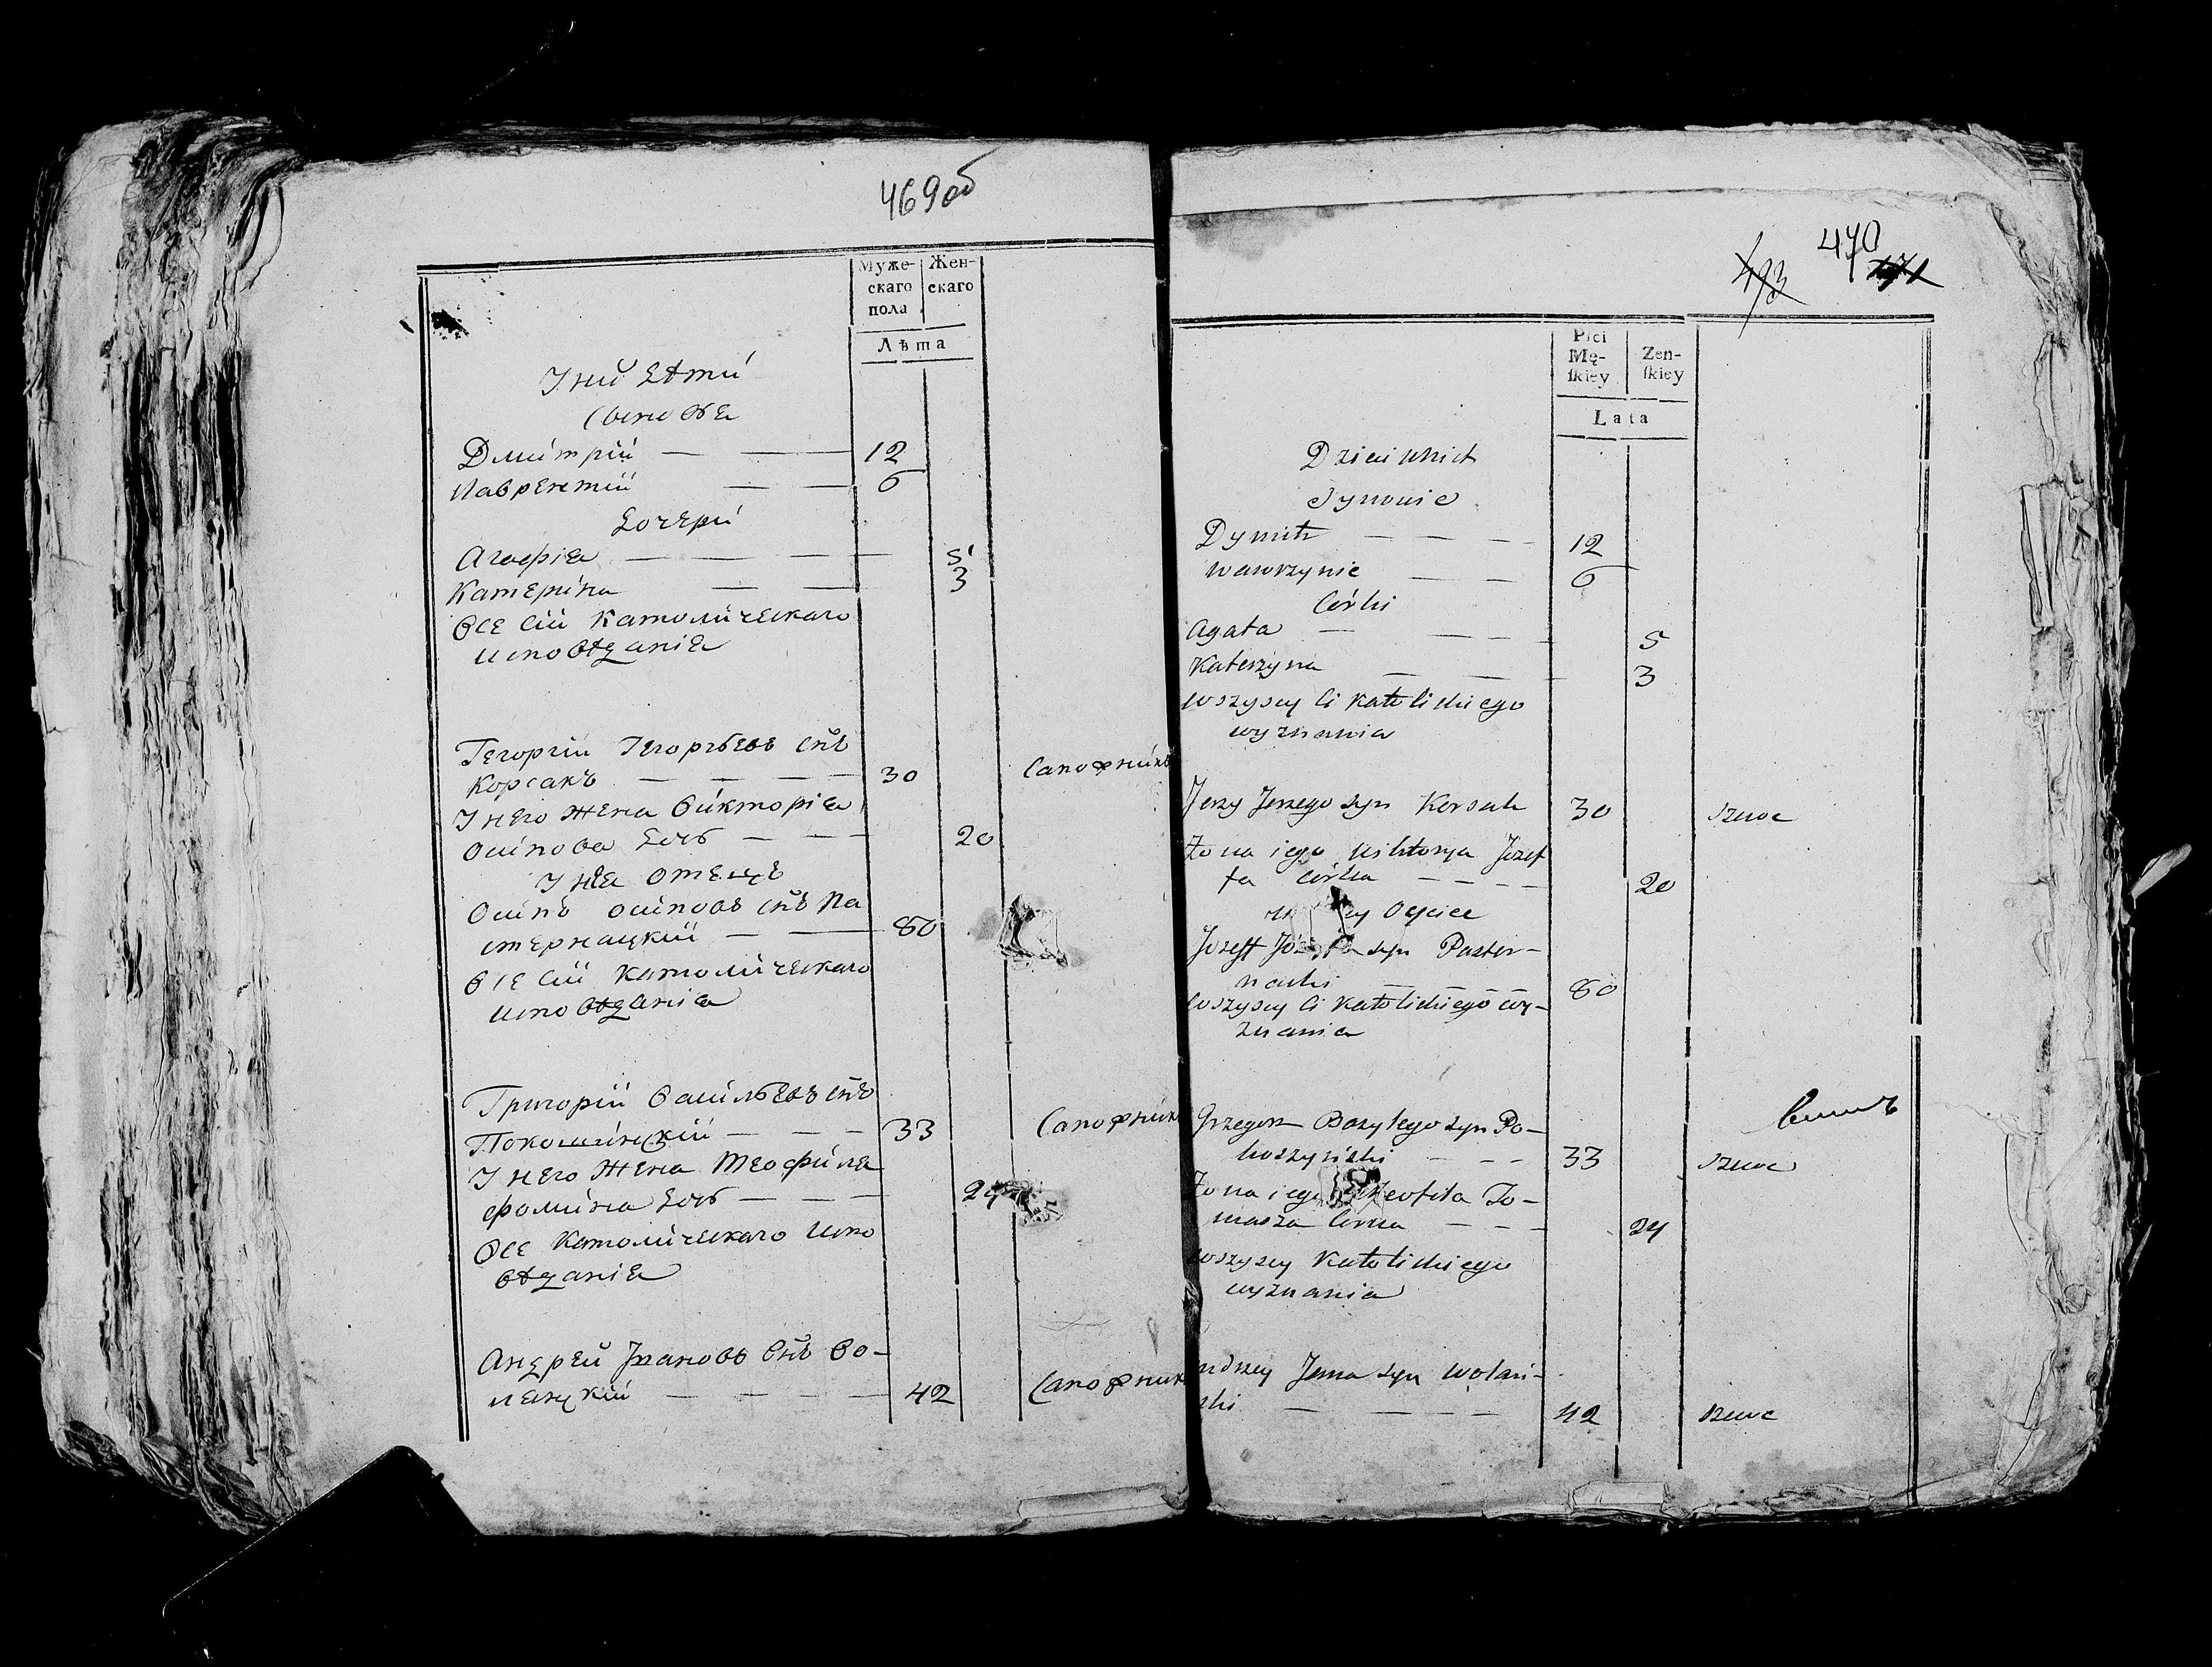 469 об
Муже-
скаго
пола
Жен-
скаго
Лѣта
У ниӳ дѣти
сынове
Дмитрій — — 12
Лаврентій — — 6
дочери
Агафіа — — — — 5
Катерина — — 3
все сіи католическаго
исповѣданіа
Гегоргіи Гегоргьевъ сн҃ъ
Корсакъ — — — — 30 Сапожникъ
У него жена Викторіа
Осипова дочь — — — 20
У неа отецъ
Осипъ Осиповъ сн҃ъ Па
стернацкій — — 80
все сіи католическаго
исповѣданіа
Григорій Васильевъ сн҃ъ
Покошинскій — — — 33 Сапожник
У него жена Теофила
Фомина дочь — — — 24
все католическаго испо
вѣданіа
Андрей Ивановъ сн҃ъ Во-
ленскій — — — 42 Сапожник
493 470
Płci
Mę-
ſkiey
Zen-
ſkiey
Lata
Dzieci u nich
Synowie
Dymitr — — — — 12
Wawrzynic — — 6
Córki
Agata — — — — 5
Katerzyna — — — 3
wszyscy ci katolickiego
wyznania
Jerzy Jerzego syn Korsak 30 szwoc
Żona iego Wiktorya Józef
fa córka — — — — 20
oycice
Jozeff syn Paster-
nacki — — — — 80
wszyscy ci katolickiego wy-
znania
Grzegorz Bazylego syn Po-
koszyński — — — 33 szwoc
Żona iego Teofila To-
masza córka — — — 24
wszyscy katolickiego
wyznania
ndrzey Jana syn Wolań-
ski — — — — 42 szwoc